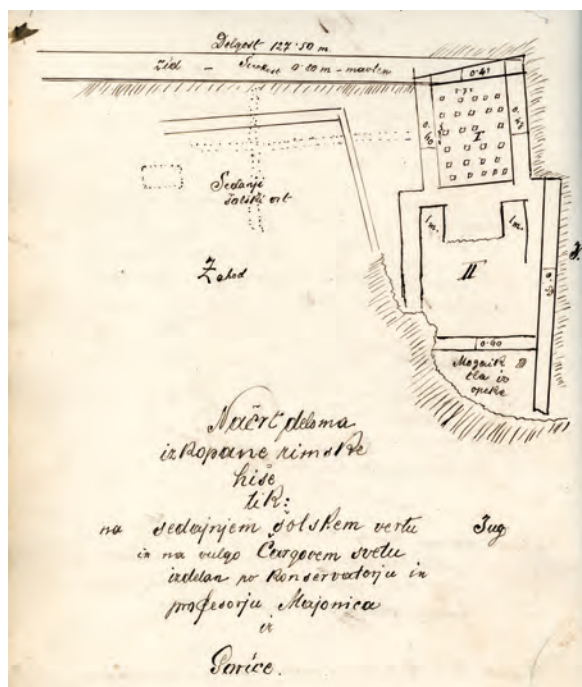 Dolgost 127·50 m.
Zid – 0·60 m – mavten
0·45
I
0·60
Sedanji
šolski vrt
1 m.
1 m.
Zahod
II
0·60
Mozaik
tla iz
opeke
Načrt deloma
izkopane rimske
hiše
tik:
na sedajnjem šolskem vertu
Jug
in na vulgo Čargovem svetu
izdelan po Konservatorju in
profesorju Majonica
iz
Gorice.